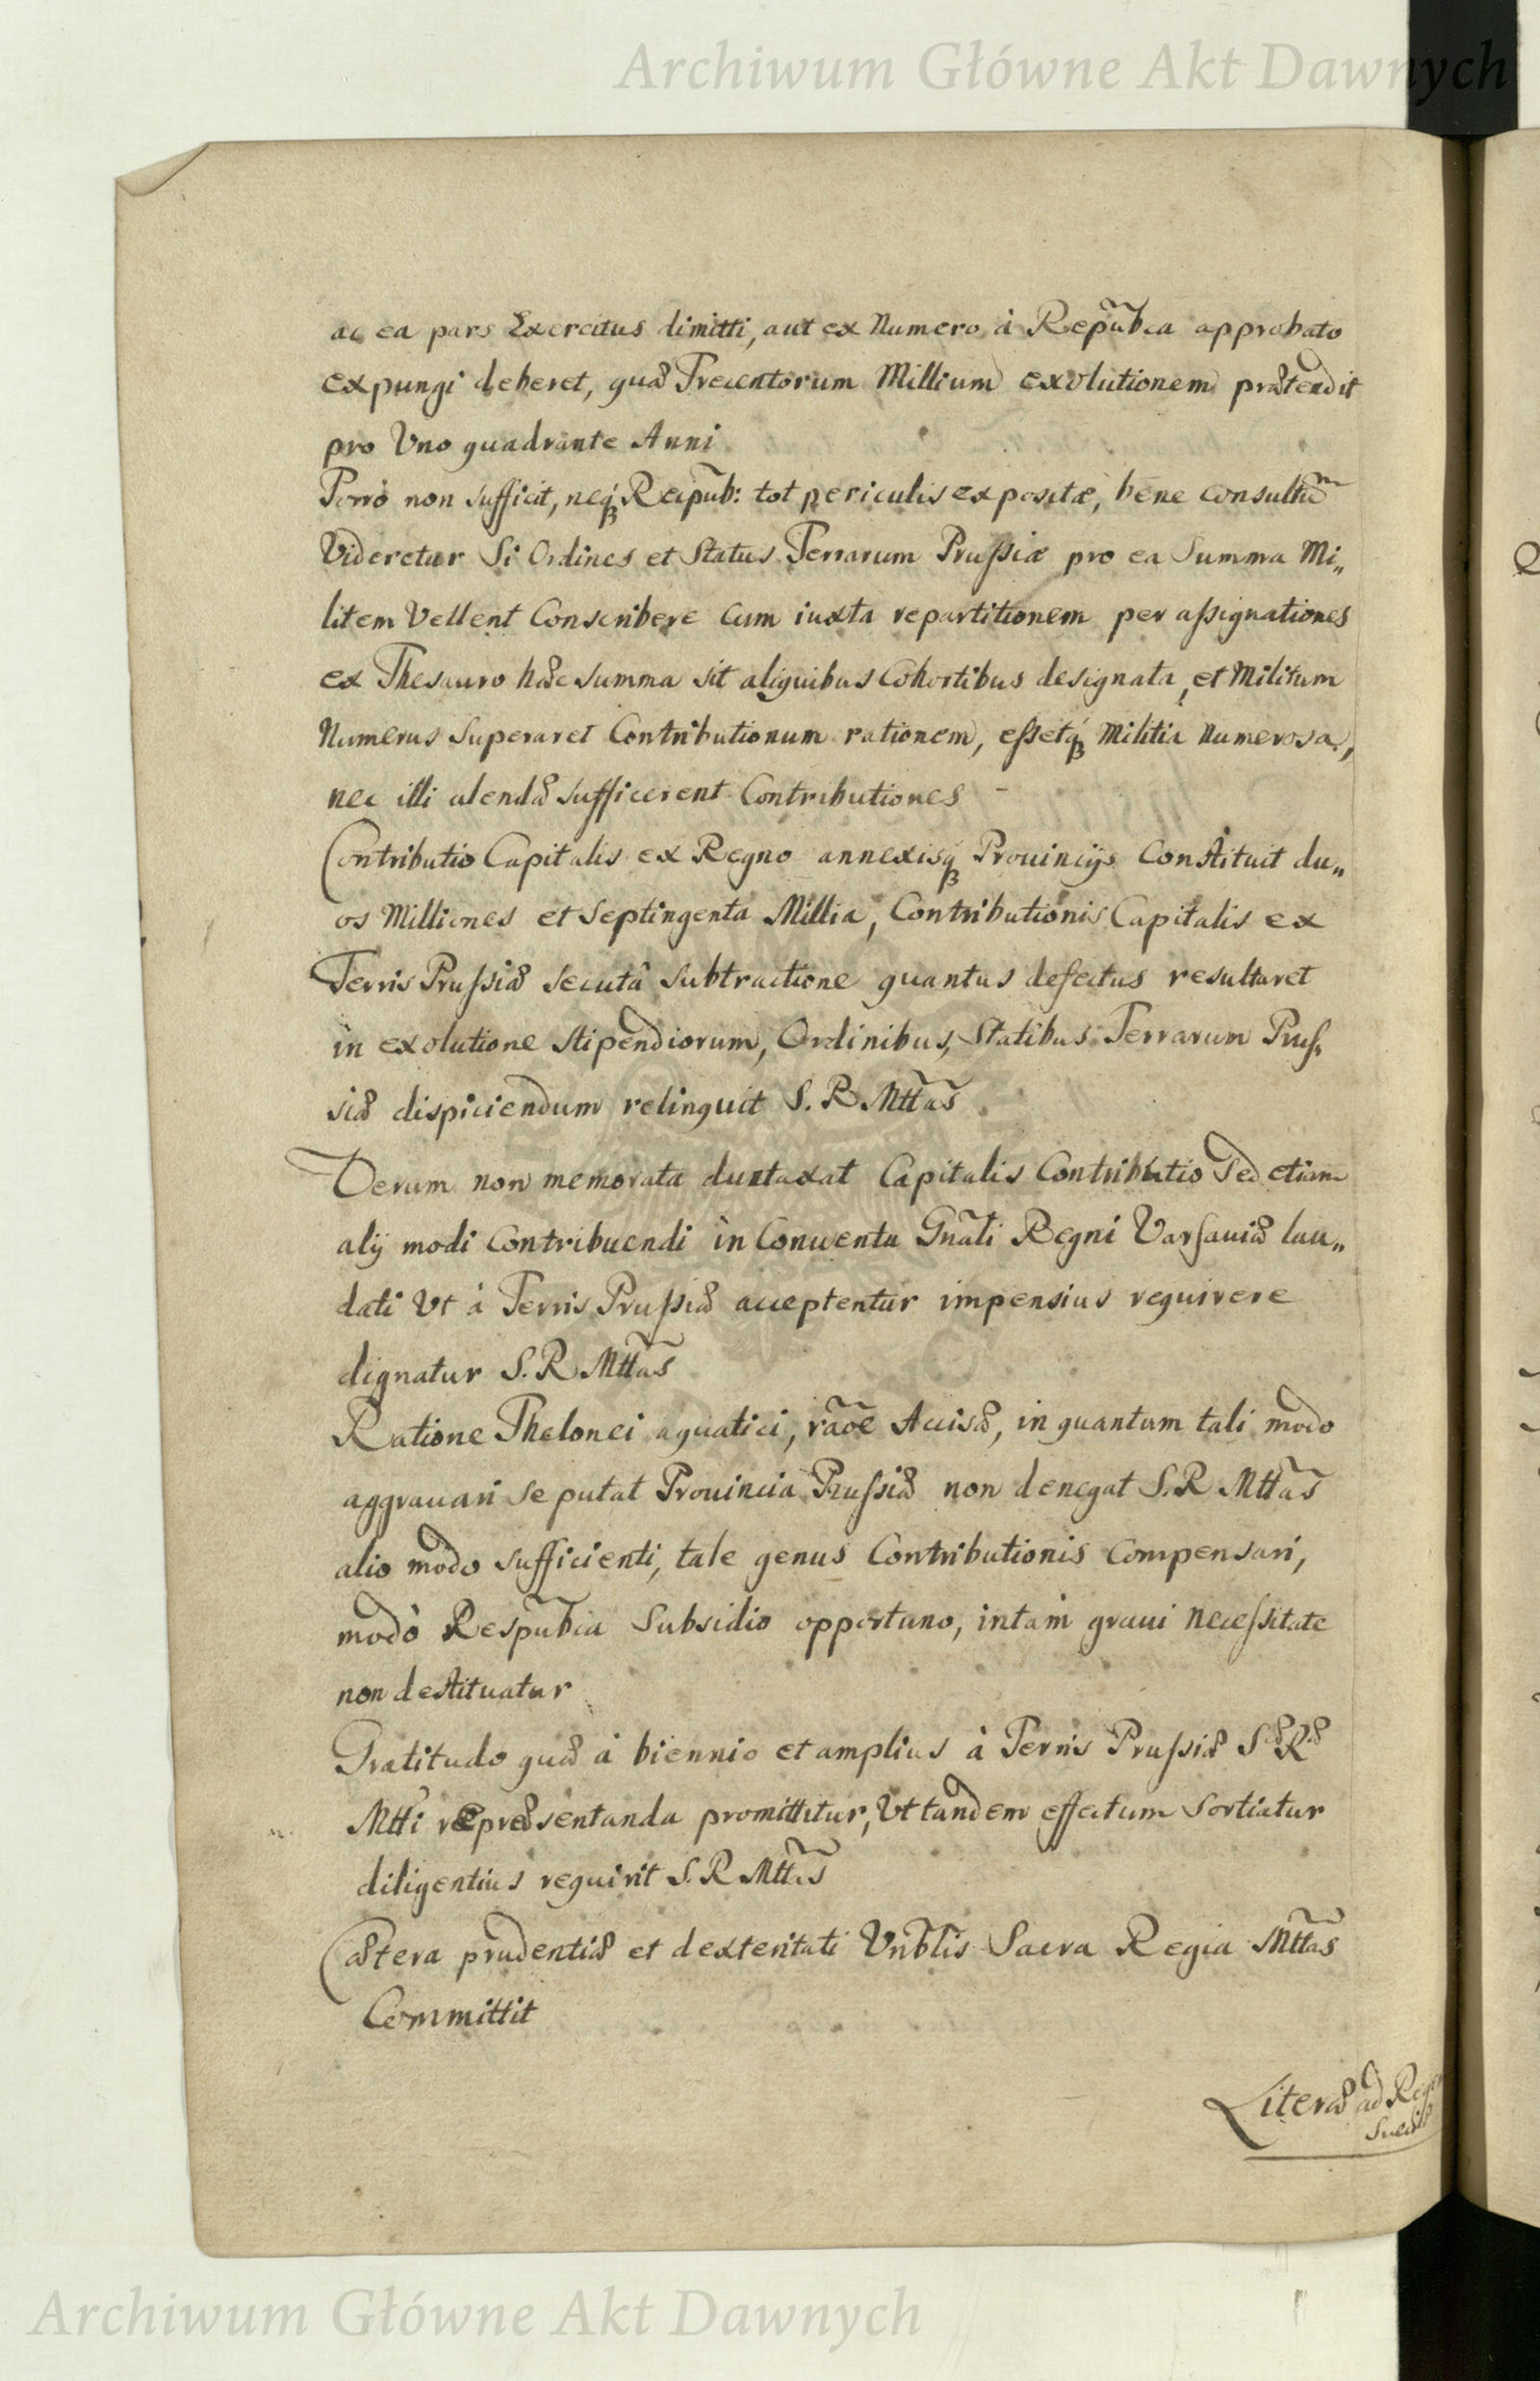 Archiwum Główne Akt Dawnych
ac ea pars Exercitus dimitti, aut ex Numero à Repũbca approbato
expungi deberet, quæ Trecentorum Millium exolutionem prætendit
pro Uno quadrante Anni
Porrò non sufficit, neq́ꝫ Reipũb: tot periculis expositæ, bene consultũm
Videretur Si Ordines et Status Terrarum Prußiæ pro ea Summa Mi„
litem Vellent Conscribere Cum iuxta repartitionem per aßignationes
ex Thesauro hæc summa sit aliquibus Cohortibus designata, et Militum
Numerus Superaret Contributionum rationem, eßetq́ꝫ Militia Numerosa,
nec illi alendæ sufficerent Contributiones -
Contributio Capitalis ex Regno annexisq́ꝫ Prouincijs Constituit du„
os Milliones et Septingenta Millia, Contributionis Capitalis ex
Terris Prußiæ secutâ subtractione quantus defectus resultaret
in exolutione stipendiorum, Ordinibus, Statibus Terrarum Prus„
siæ dispiciendum relinquit S. R Mttãs
Verum non memorata duntaxat Capitalis Contributio Sed etiam
alij modi Contribuendi in Conuentu Gnãli Regni Varsauiæ lau„
dati Ut à Terris Prußiæ acceptentur impensius requirere
dignatur S. R Mttãs
Ratione Thelonei aquatici, rãõe Accisæ, in quantum tali modo
aggrauari se putat Prouincia Prußiæ non denegat S. R Mttãs
alio modo sufficienti, tale genus Contributionis Compensari,
modò Respũbca Subsidio opportuno, in tam graui Neceßitate
non destituatur
Gratitudo quæ à biennio et amplius à Terris Prußiæ Sæ Ræ
Mtti repræsentanda promittitur, Ut tandem effectum Sortiatur
diligentius requirit S. R Mttãs
Cætera prudentiæ et dexteritati Urĩblis Sacra Regia Mttãs
Committit
Literæ ad Regem
Sueciæ
Archiwum Główne Akt Dawnych